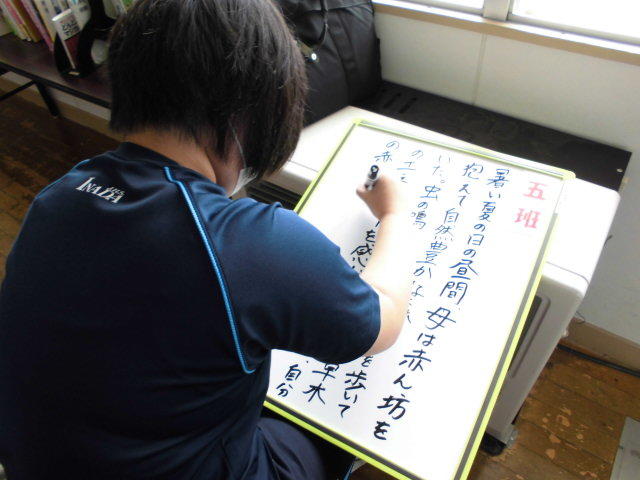 五班
暑い夏の日の昼間、母は赤ん坊を
抱えて自然豊かな を歩いて
いた。虫の鳴 草木
の を感 自分
の赤
INABA